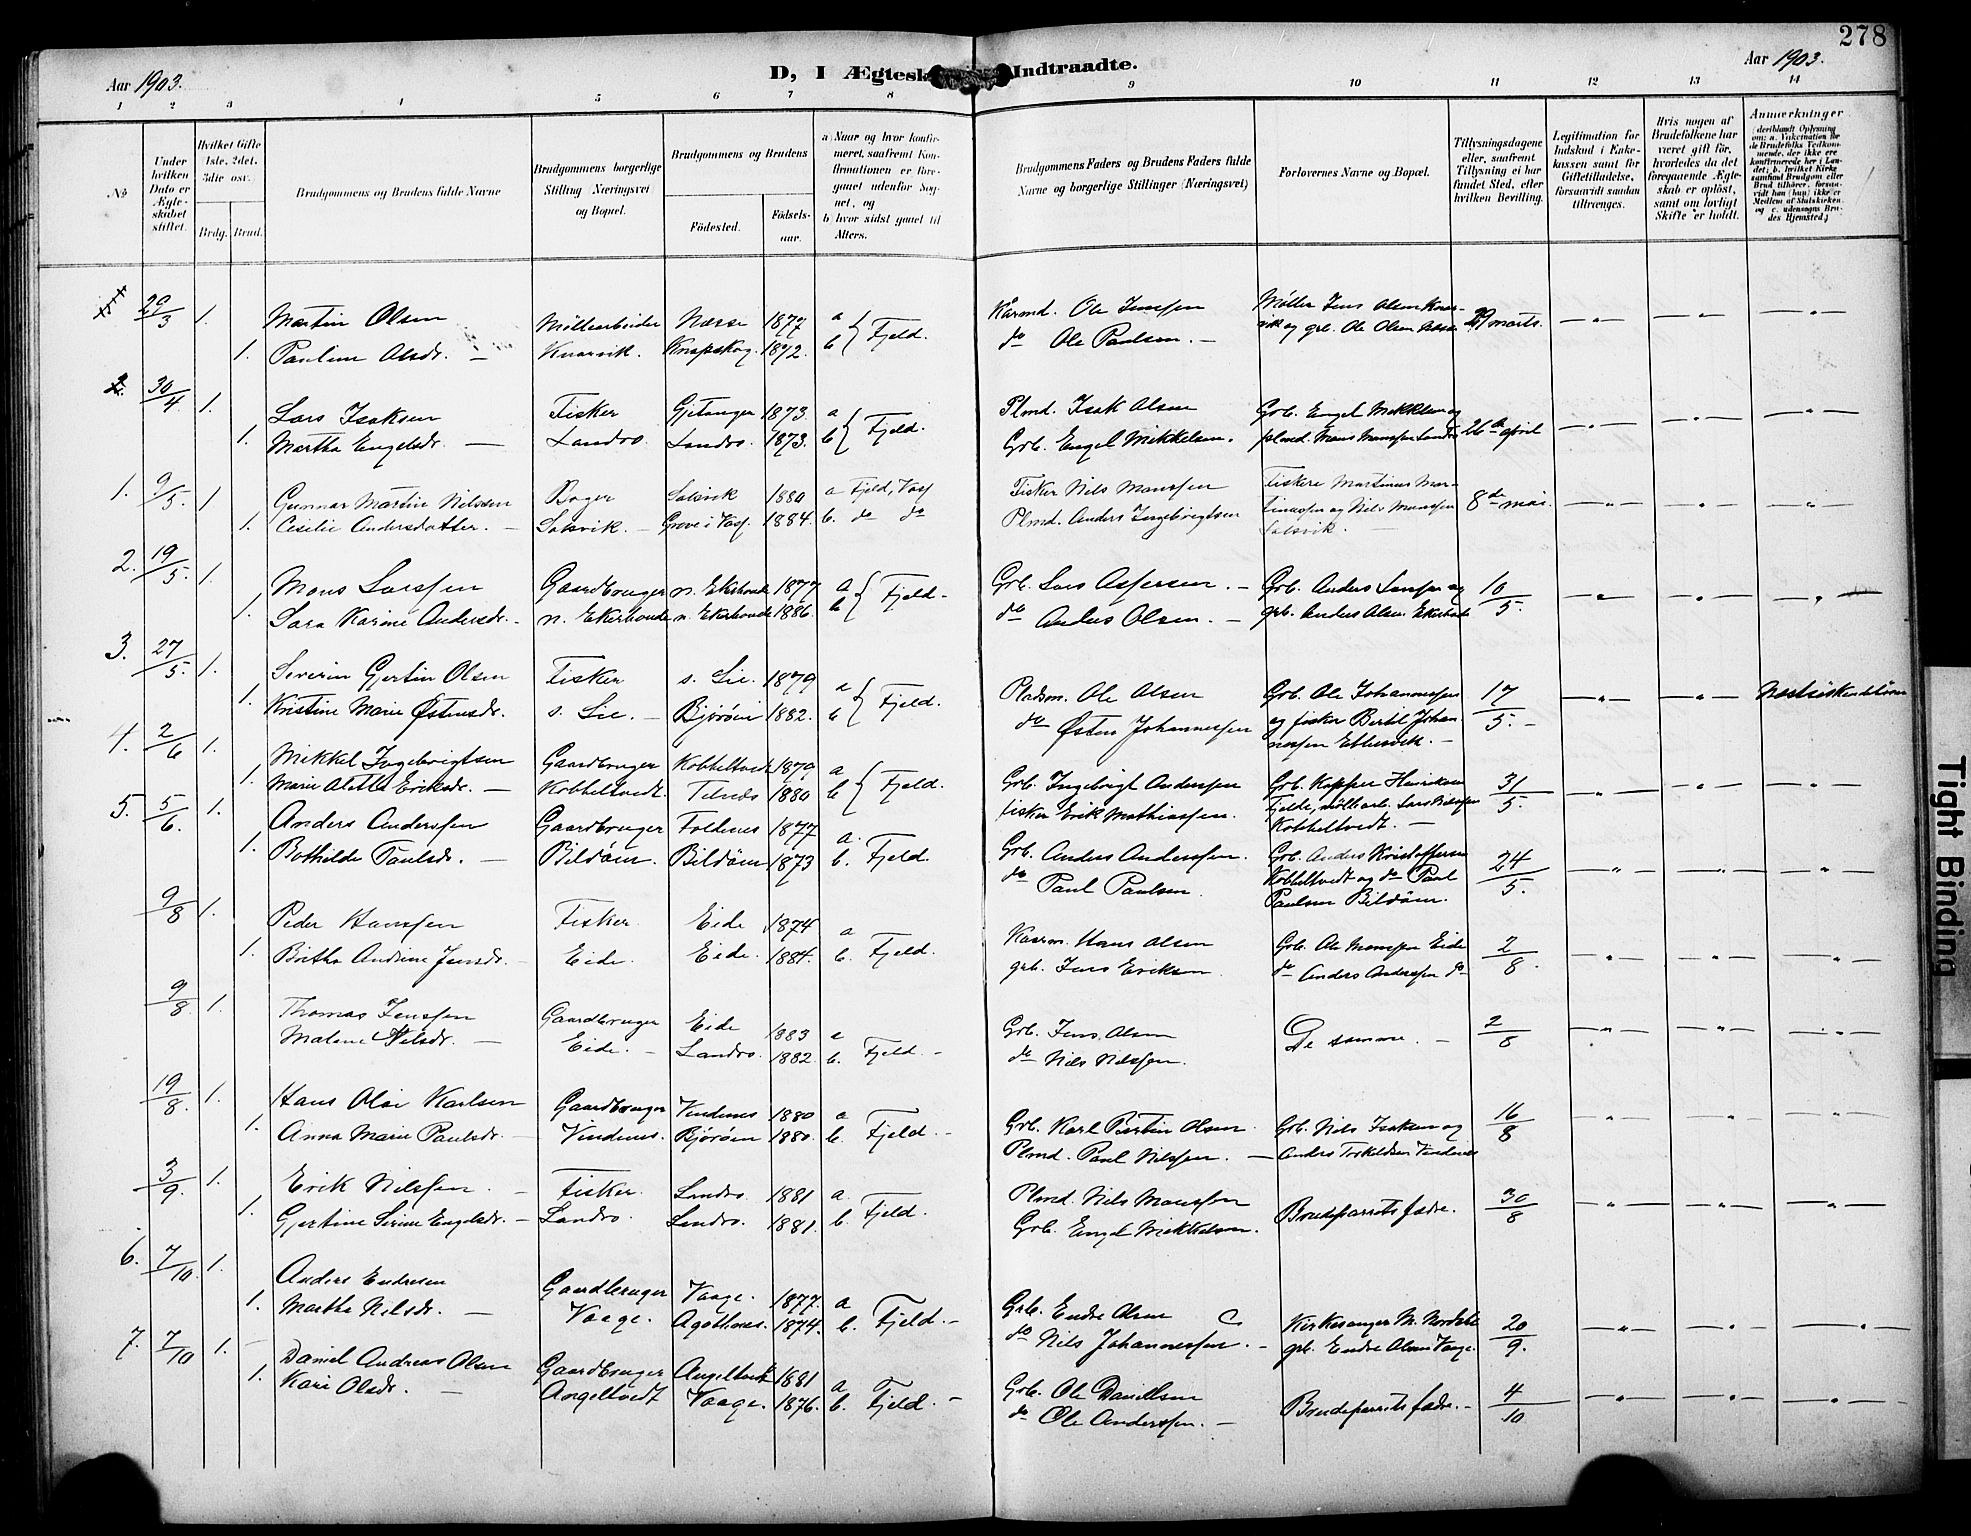 278
Aar 1903.
D, I Ægtesk Indtraadte.
Aar 1903.
1 2 3 4 5 6 7 8 9 10 11 12 13 14
No
Under hvilken Dato er Ægteskabet stiftet.
Hvilket Gifte 1ste, 2det, 3die osv.
Brdg. Brud.
Brudgommens og Brudens fulde Navne
Brudgommens borgerlige Stilling (Næringsvei) og Bopæl.
Brudgommens og Brudens
Fødested.
Fødselsaar.
a) Naar og hvor konfirmeret, saafremt Konfirmationen er foregaaet udenfor Sognet, og
b) hvor sidst gaaet til Alters.
Brudgommens Faders og Brudens Faders fulde Navne og borgerlige Stillinger (Næringsvei)
Forlovernes Navne og Bopæl.
Tillysningsdagene eller, saafremt Tillysning ei har fundet Sted, efter hvilken Bevilling.
Legitimation for Indskud i Enkekassen samt for Giftetilladelse, forsaavidt saadan tiltrænges.
Hvis nogen af Brudefolkene har været gift før, hvorledes da det foregaaende Ægteskab er opløst, samt om lovligt Skifte er holdt.
Anmærkninger
29/3 1. Martin Olsen Møllearbeider Næsse 1877 a Kårmd. Ole Jenssen Møller Jens Olsen Knar-
1. Pauline Olsdr. — Knarvik. Knapskog. 1872. b Fjeld. do Ole Paulsen. — vik og grb. Ole Olsen 29 marts.
30/4 1. Lars Isaksen Fisker Gjetanger 1873. a Plmd. Isak Olsen Grb. Engel Mikkelsen og
1. Martha Engelsdr. — Landro. Landro. 1873. b Fjeld. Grb. Engel Mikkelsen. plmd. Mons Monssen Landro 26de april
1. 9/5 1 Gunnar Martin Nilssen Bager Solsvik 1880 a Fjeld, Vos Fisker Nils Monssen Fiskere Martinus Mar-
1. Cesilie Andersdatter. — Solsvik. — Grove i Vos. 1884. b. do do Plmd. Anders Ingebrigtsen tinussen og Nils Monssen 8de mai.
Solsvik.
2. 19/5. 1. Mons Larssen Gaardbruger n. Ekerhovde 1877 a Grb. Lars Assersen. — Grb. Anders Larssen og 10/5.
1. Sara Karine Andersdr. n. Ekerhovde n. Ekerhovde 1886. b Fjeld. do Anders Olsen. — grb. Anders Olsen Ekerhovde
3. 27/5. 1. Severin Gjertin Olsen Fisker s. Lie. 1879 a Pladsm. Ole Olsen Grb. Ole Johannessen 17/5. Næstsøskendebørn
1. Kristine Marie Østensdr. s. Lie. — Bjørøen 1882. b Fjeld. do Østen Johannessen og fisker Bertil Johan-
nessen
4. 2/6 1. Mikkel Ingebrigtsen Gaardbruger Kobbeltvedt 1879 a Grb. Ingebrigt Anderssen Grb. Kasper Henriksen 31/5.
1. Marie Aletta Eriksdr. — Kobbeltvedt. 1880 b Fjeld. fisker Erik Mathiassen. Fjelde, møllearb. Lars Nilssen
Kobbeltvedt. —
5. 5/6. 1. Anders Anderssen Gaardbruger Foldnes 1877 a. Grb. Anders Anderssen. Grb. Anders Kristoffersen 24/5.
1. Bothilde Paulsdr. — Bildøen. Bildøen 1873 b. Fjeld. do Paul Paulsen Kobbeltvedt og do Paul
Paulsen Bildøen.
9/8 1. Peder Hanssen Fisker. Eide 1874 a Kaarm. Hans Olsen Grb. Ole Monssen Eide 2/8.
1. Britha Andrine Jensdr. Eide. Eide. 1884. b. Fjeld. grb. Jens Eriksen. do Anders Anderssen do
9/8 1. Thomas Jenssen Gaardbruger Eide 1883 a Grb. Jens Olsen De samme. — 2/8
Malene Nilsdr. — Eide. — Landro. 1882. b. Fjeld. — do Nils Nilssen.
19/8. 1. Hans Olai Karlsen Gaardbruger Vindenes 1880 a Grb. Karl Bertin Olsen. Grb. Nils Isaksen og 16/8
1. Anna Marie Paulsdr. Vindenes. Bjørøen 1880. b. Fjeld. — Plmd. Paul Nilssen. — Anders Torkildsen Vindenes
3/9. 1. Erik Nilssen. Fisker. Landro 1881 a. Plmd. Nils Monssen Brudeparrets fædre. 30/8
1. Gjertine Sirine Engelsdr. — Landro. Landro. 1881. b. Fjeld. Grb. Engel Mikkelsen.
6. 7/10. 1. Anders Endresen Gaardbruger Vaage. 1877. a Grb. Endre Olsen Kirkesanger M. 20/9.
1. Martha Nilsdr. — Vaage. Agotnes. 1874. b. Fjeld. — do Nils Johannessen. — grb. Endre Olsen Vaage.
7. 7/10 1. Daniel Andreas Olsen Gaardbruger Angeltvedt 1881 a Grb. Ole Danielsen Brudeparrets fædre. — 4/10
1. Kari Olsdr. — Angeltvedt Vaage. 1876. b. Fjeld. — do Ole Anderssen. —
Tight Binding